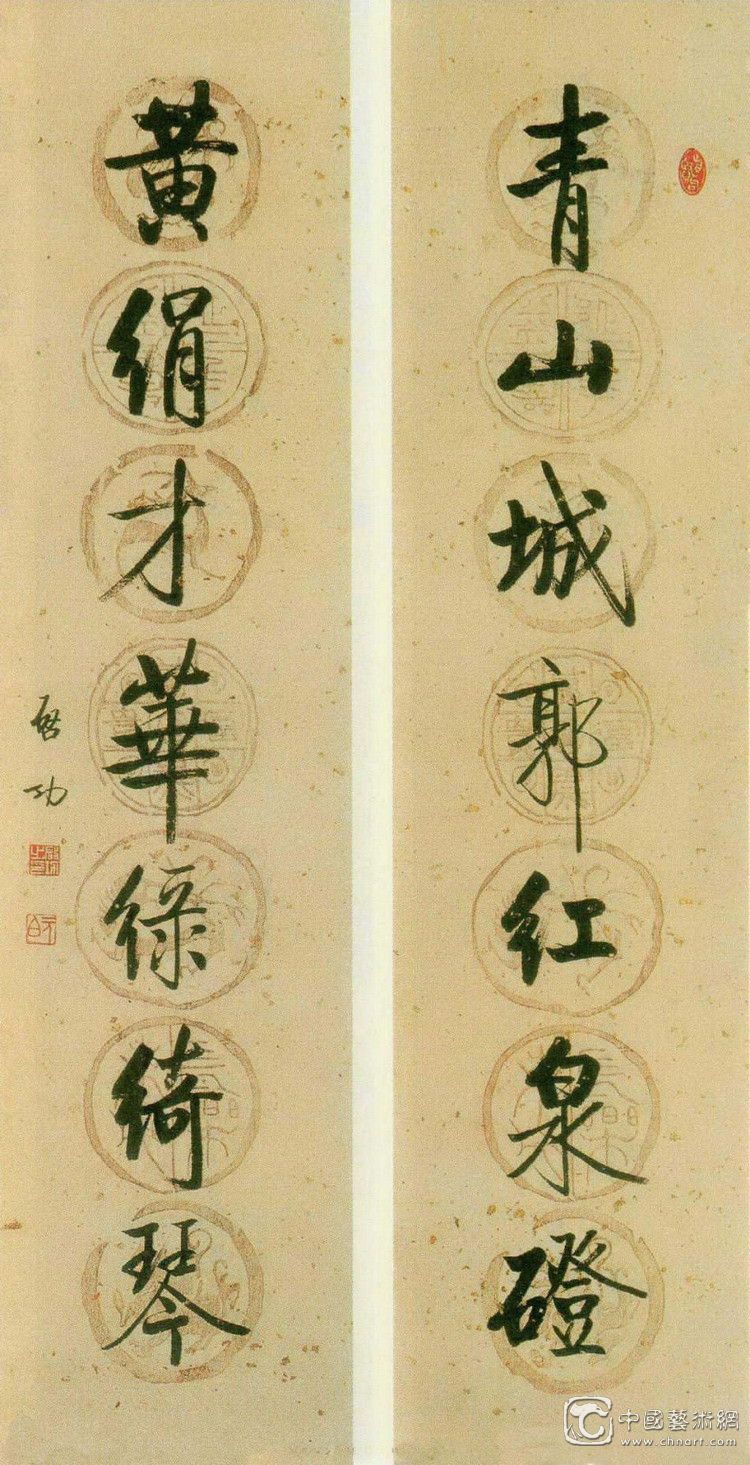 青山城郭红泉磴
黄绢才華緑綺琴
啟功
中國藝術網
www.chnart.com